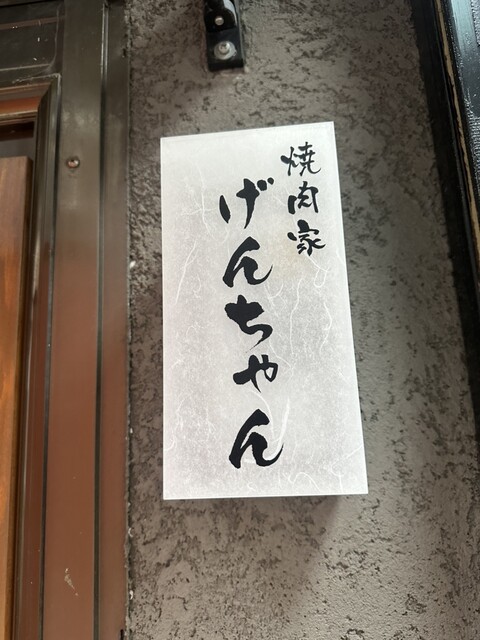 焼肉家
げんちゃん